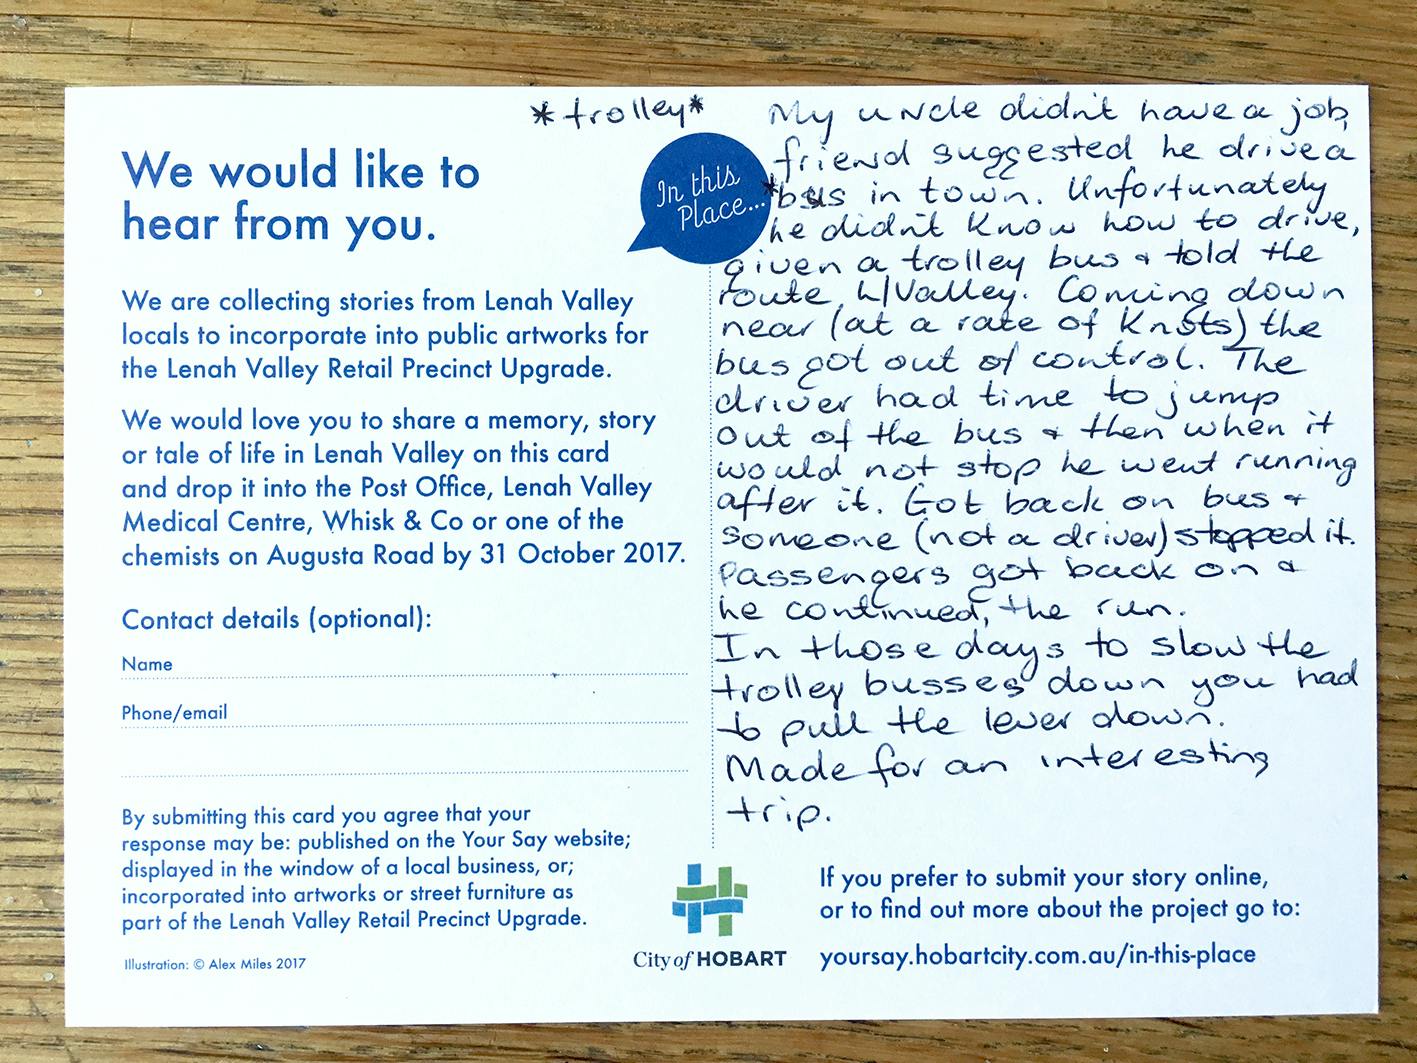 *trolley*
We would like to
hear from you.
In this
Place...
We are collecting stories from Lenah Valley
locals to incorporate into public artworks for
the Lenah Valley Retail Precinct Upgrade.
We would love you to share a memory, story
or tale of life in Lenah Valley on this card
and drop it into the Post Office, Lenah Valley
Medical Centre, Whisk & Co or one of the
chemists on Augusta Road by 31 October 2017.
Contact details (optional):
Name
Phone/email
By submitting this card you agree that your
response may be: published on the Your Say website;
displayed in the window of a local business, or;
incorporated into artworks or street furniture as
part of the Lenah Valley Retail Precinct Upgrade.
Illustration: © Alex Miles 2017
My uncle didn't have a job,
friend suggested he drive a
*bus in town. Unfortunately
he didn't know how to drive,
given a trolley bus & told the
route, L/Valley. Coming down
near (at a rate of knots) the
bus got out of control. The
driver had time to jump
out of the bus & then when it
would not stop he went running
after it. Got back on bus &
someone (not a driver) stopped it.
Passengers got back on &
he continued, the run.
In those days to slow the
trolley busses down you had
to pull the lever down.
Made for an interesting
trip.
City of HOBART
If you prefer to submit your story online,
or to find out more about the project go to:
yoursay.hobartcity.com.au/in-this-place